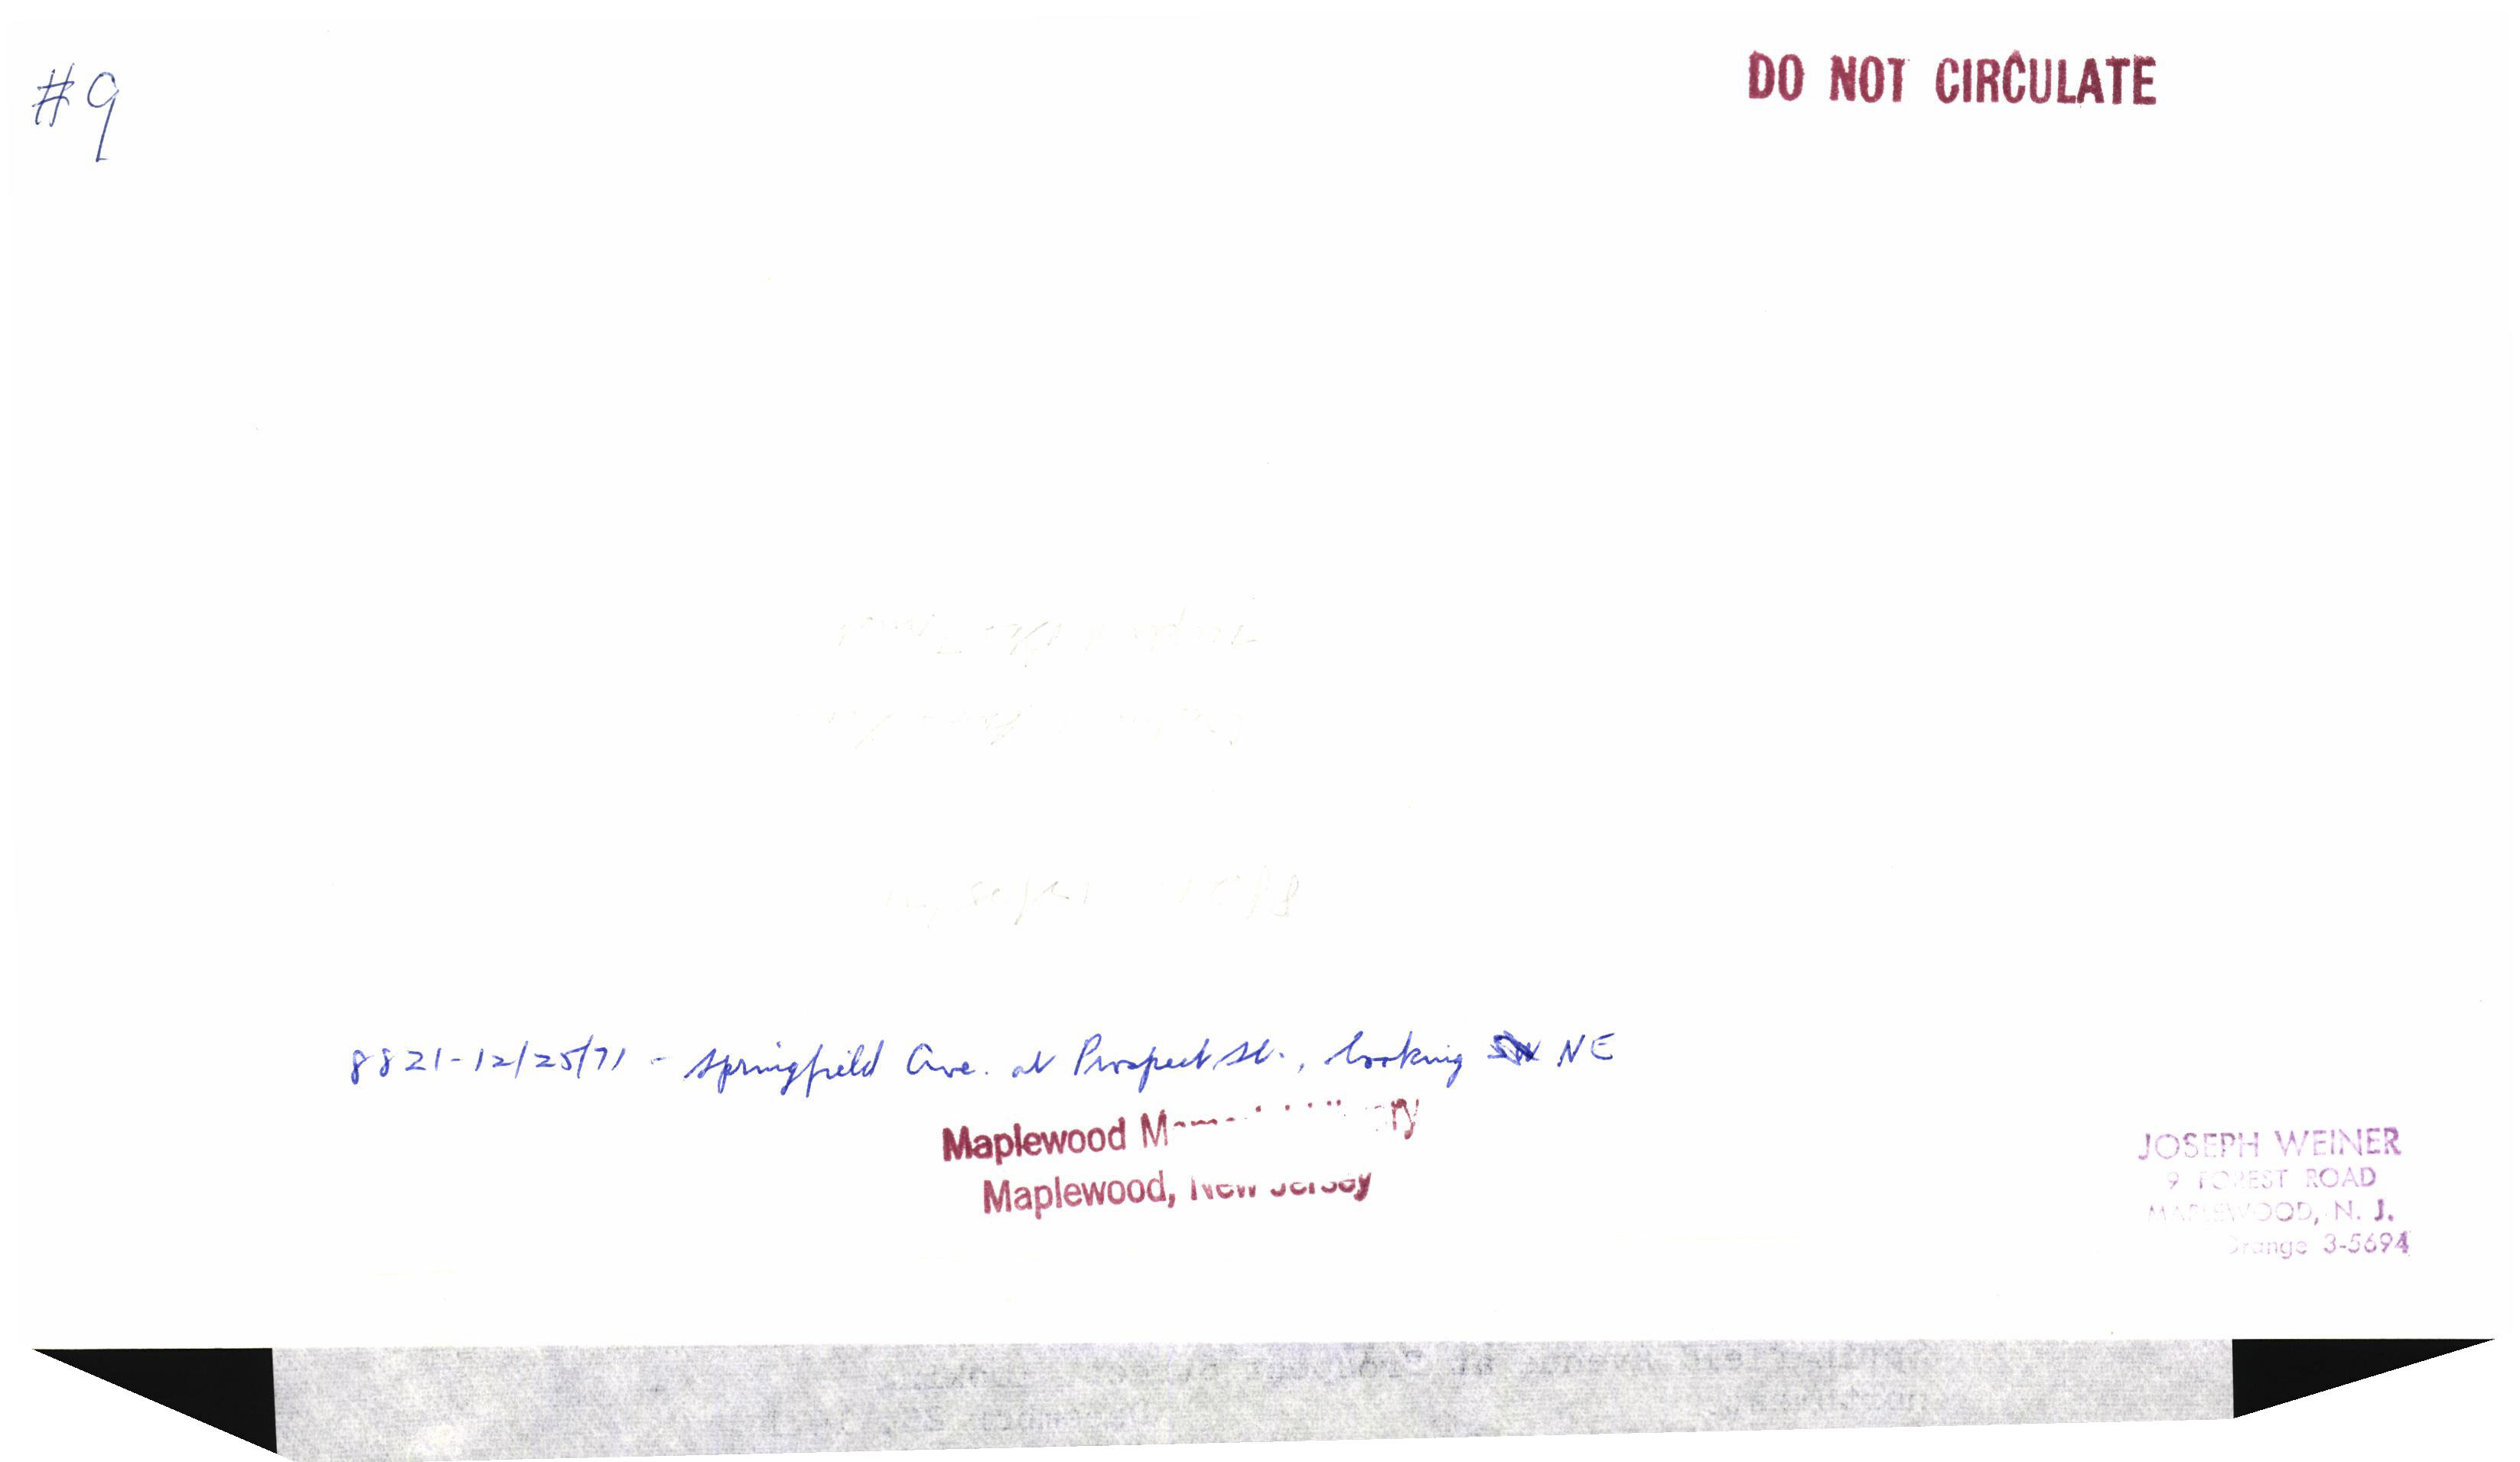 #9
DO NOT CIRCULATE
8821-12/25/71 - Springfield Ave. at Prospect St., looking NE
Maplewood
Maplewood, New Jersey
JOSEPH WEINER
9 FOREST ROAD
MAPLEWOOD, N. J.
Orange 3-5694